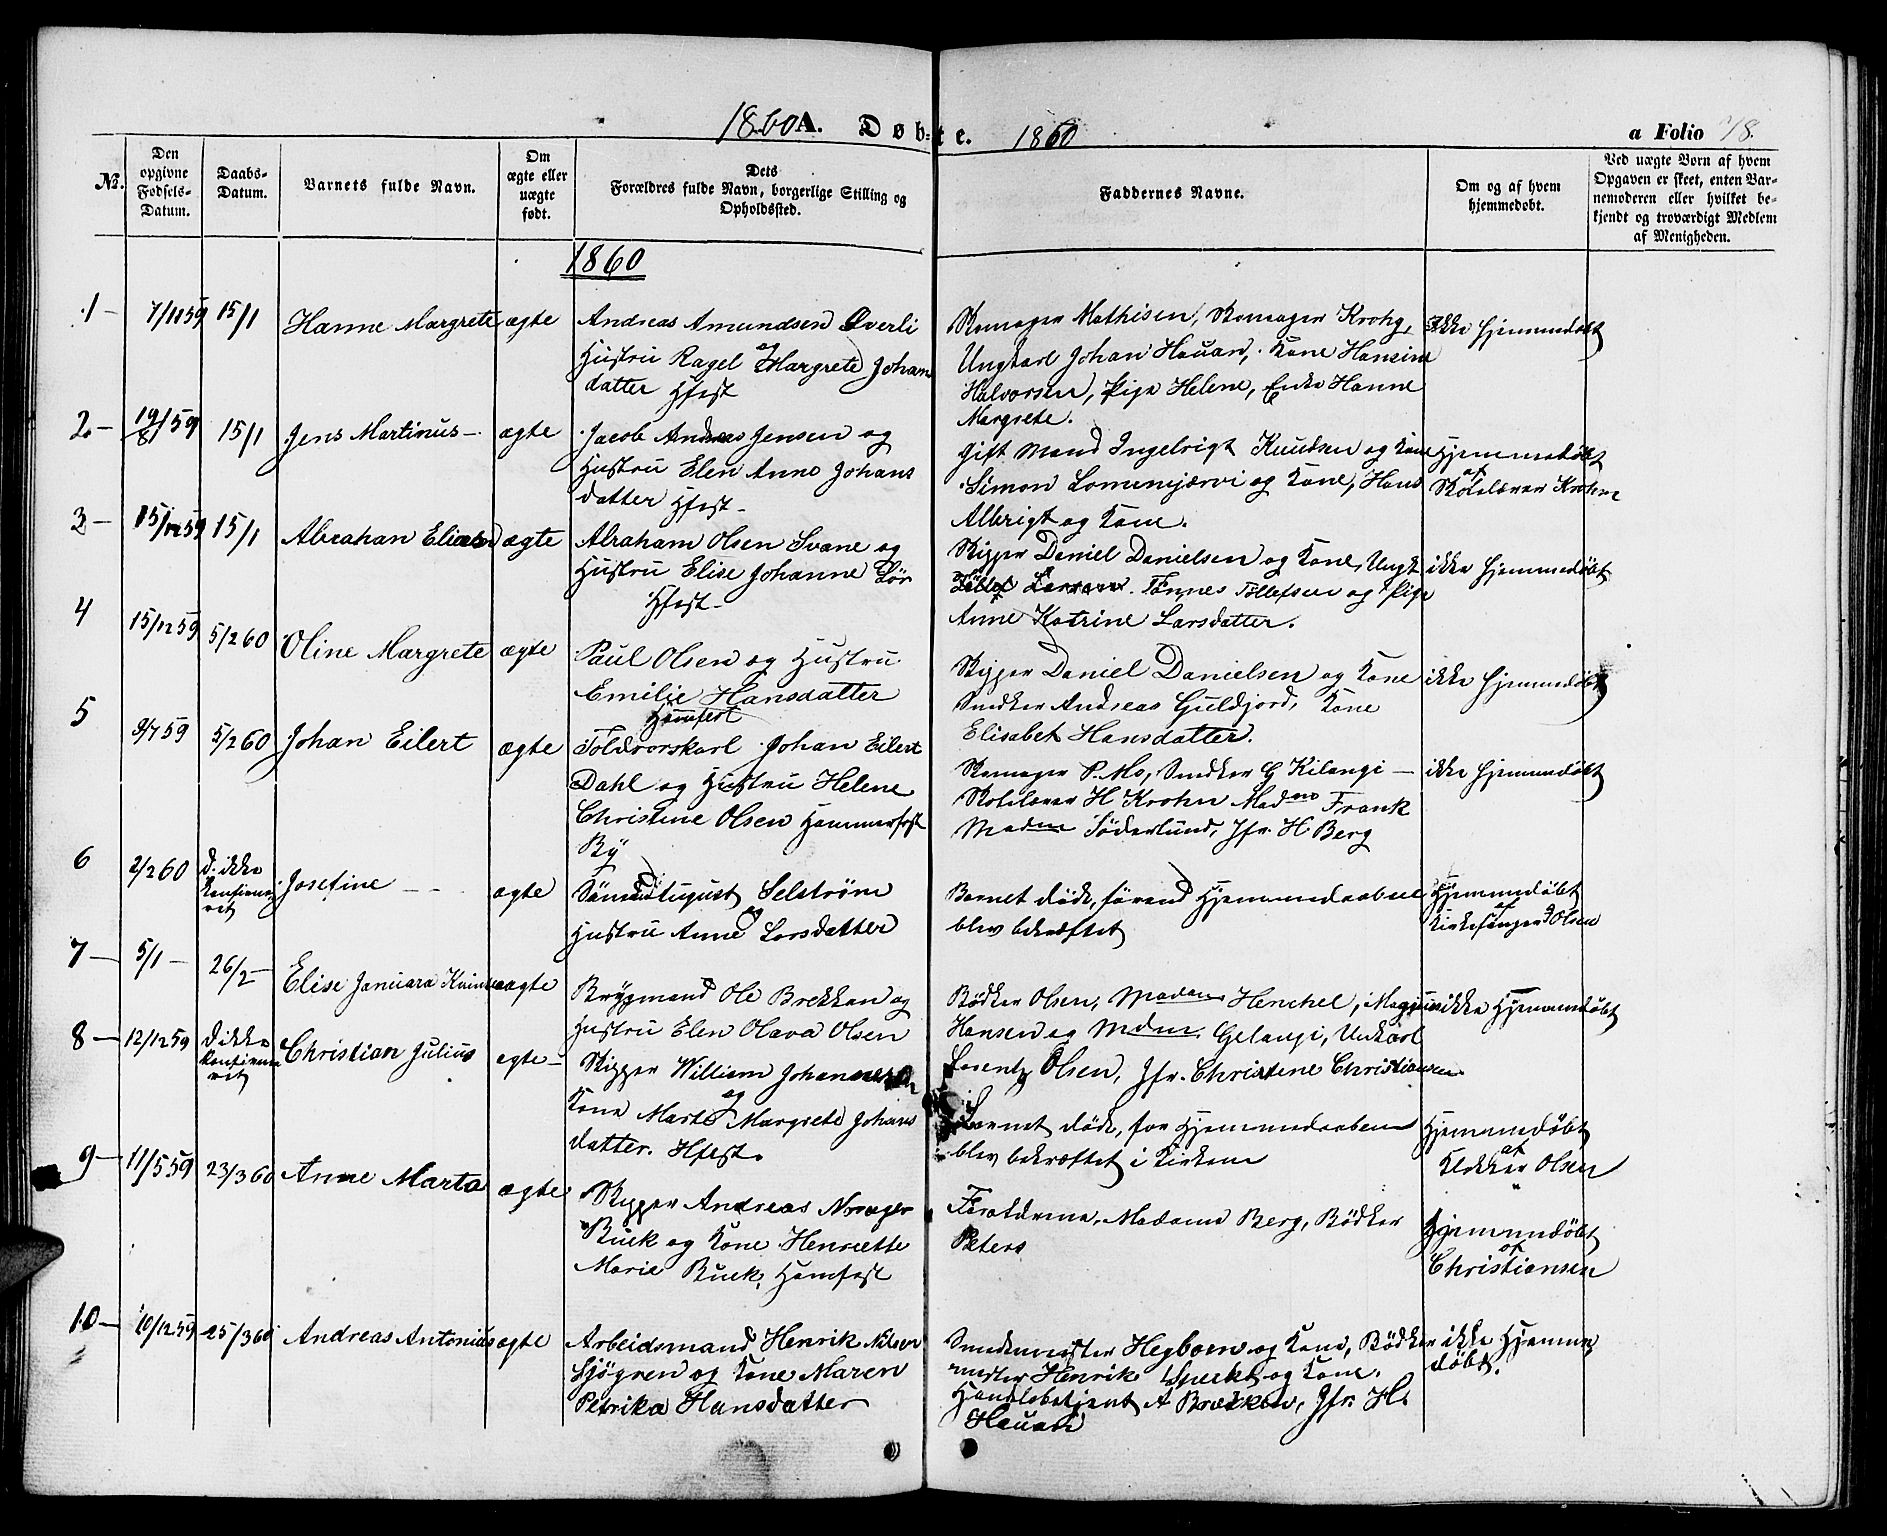 1860 A. Døbte. 1860 a Folio 78.
No.
Den opgivne Fødsels-Datum.
Daabs-Datum.
Barnets fulde Navn.
Om ægte eller uægte født.
Dets Forældres fulde Navn, borgerlige Stilling og Opholdssted.
Faddernes Navne.
Om og af hvem hjemmedøbt.
Ved uægte Born af hvem Opgaven er skeet, enten Barnemoderen eller hvilket bekjendt og troværdigt Medlem af Menigheden.
1860
1 – 7/11 59 15/1 Hanne Margrete ægte
Andreas Amundsen Overli
Hustru Ragel Margrete Johans
datter Hfest
Skomager Mathisen, Skomager Krohg,
Ungkarl Johan Hauan, Kone Hansine
Halvorsen, Pige Helene, Enke Hanne
Margrete.
Ikke hjemmedøbt
2 – 19/8 59 15/1 Jens Martinus – ægte
Jacob Andreas Jensen og
Hustru Elen Anne Johans
datter Hfest –
Gift Mand Ingebrigt Knudsen og Kone
Simon Lomenjærvi og Kone, Hans
Albrigt og Kone.
Hjemmedøbt
af
Skolelærer Krohn
3 – 15/12 59 15/1 Abrahan Elias ægte
Abraham Olsen Svane og
Hustru Elise Johanne Lør
Hfest –
Skipper Daniel Danielsen og Kone, Ungk
Tønnes Tollefsen og Pige
Anne Katrine Larsdatter.
ikke hjemmedøbt
4 15/12 59 5/2 60 Oline Margrete ægte
Paul Olsen og Hustru
Emilie Hansdatter
Hamfest
Skipper Daniel Danielsen og Kone
Snedker Andreas Guldjord, Kone
Elisabet Hansdatter.
ikke hjemmedøbt
5 9/7 59 5/2 60 Johan Eilert ægte
Toldrorskarl Johan Eilert
Dahl og Hustru Helene
Christine Olsen Hammerfest
By
Skomager P. Mo, Snedker G Kilangi –
Skolelærer H Krohn Madme Frank
Madm Söderlund, Jfr. H Berg
ikke hjemmedøbt
6 2/2 60 D. ikke
Konfirme-
ret
Josefine – – ægte
Sømand August Selstrøm
og
Hustru Anne Larsdatter
Barnet døde, førend Hjemmedaaben
blev bekræftet
Hjemmedøbt
af
Kirkesanger Olsen
7 – 5/1 – 26/2 – Elise Januara ægte
Brygmand Ole Brekkan og
Hustru Elen Olava Olsen
Bødker Olsen, Madam Henckel, Magnus
Hansen og Mdm Gelangi, Unkarl
Lorentz Olsen, Jfr. Christine Christiansen
ikke Hjemmedøbt
8 – 12/12 59 D ikke
Konfirme
ret
Christian Julius ægte –
Skipper William Johannesen
og
Kone Marte Margrete Johans
datter. Hfest.
Barnet døde, før Hjemmedaaben
blev bekræftet i Kirken
Hjemmedøbt
af
Klokker Olsen
9 – 11/5 59 23/3 60 Anne Marta ægte
Skipper Andreas
Buck og Kone Henriette
Marie Buck, Hamfest
Forældrene, Madame Berg, Bødker
Peters
Hjemmedøbt
af
Christiansen
10 – 10/12 59 25/3 60 Andreas Antonius ægte
Arbeidsmand Henrik Nilsen
Sjögren og Kone Maren
Petrika Hansdatter
Snedkermester Hegboen og Kone, Bødker
mester Henrik og Kone.
Handelsbetjent A Brækken, Jfr. H.
Hauan
ikke Hjemme
døbt.